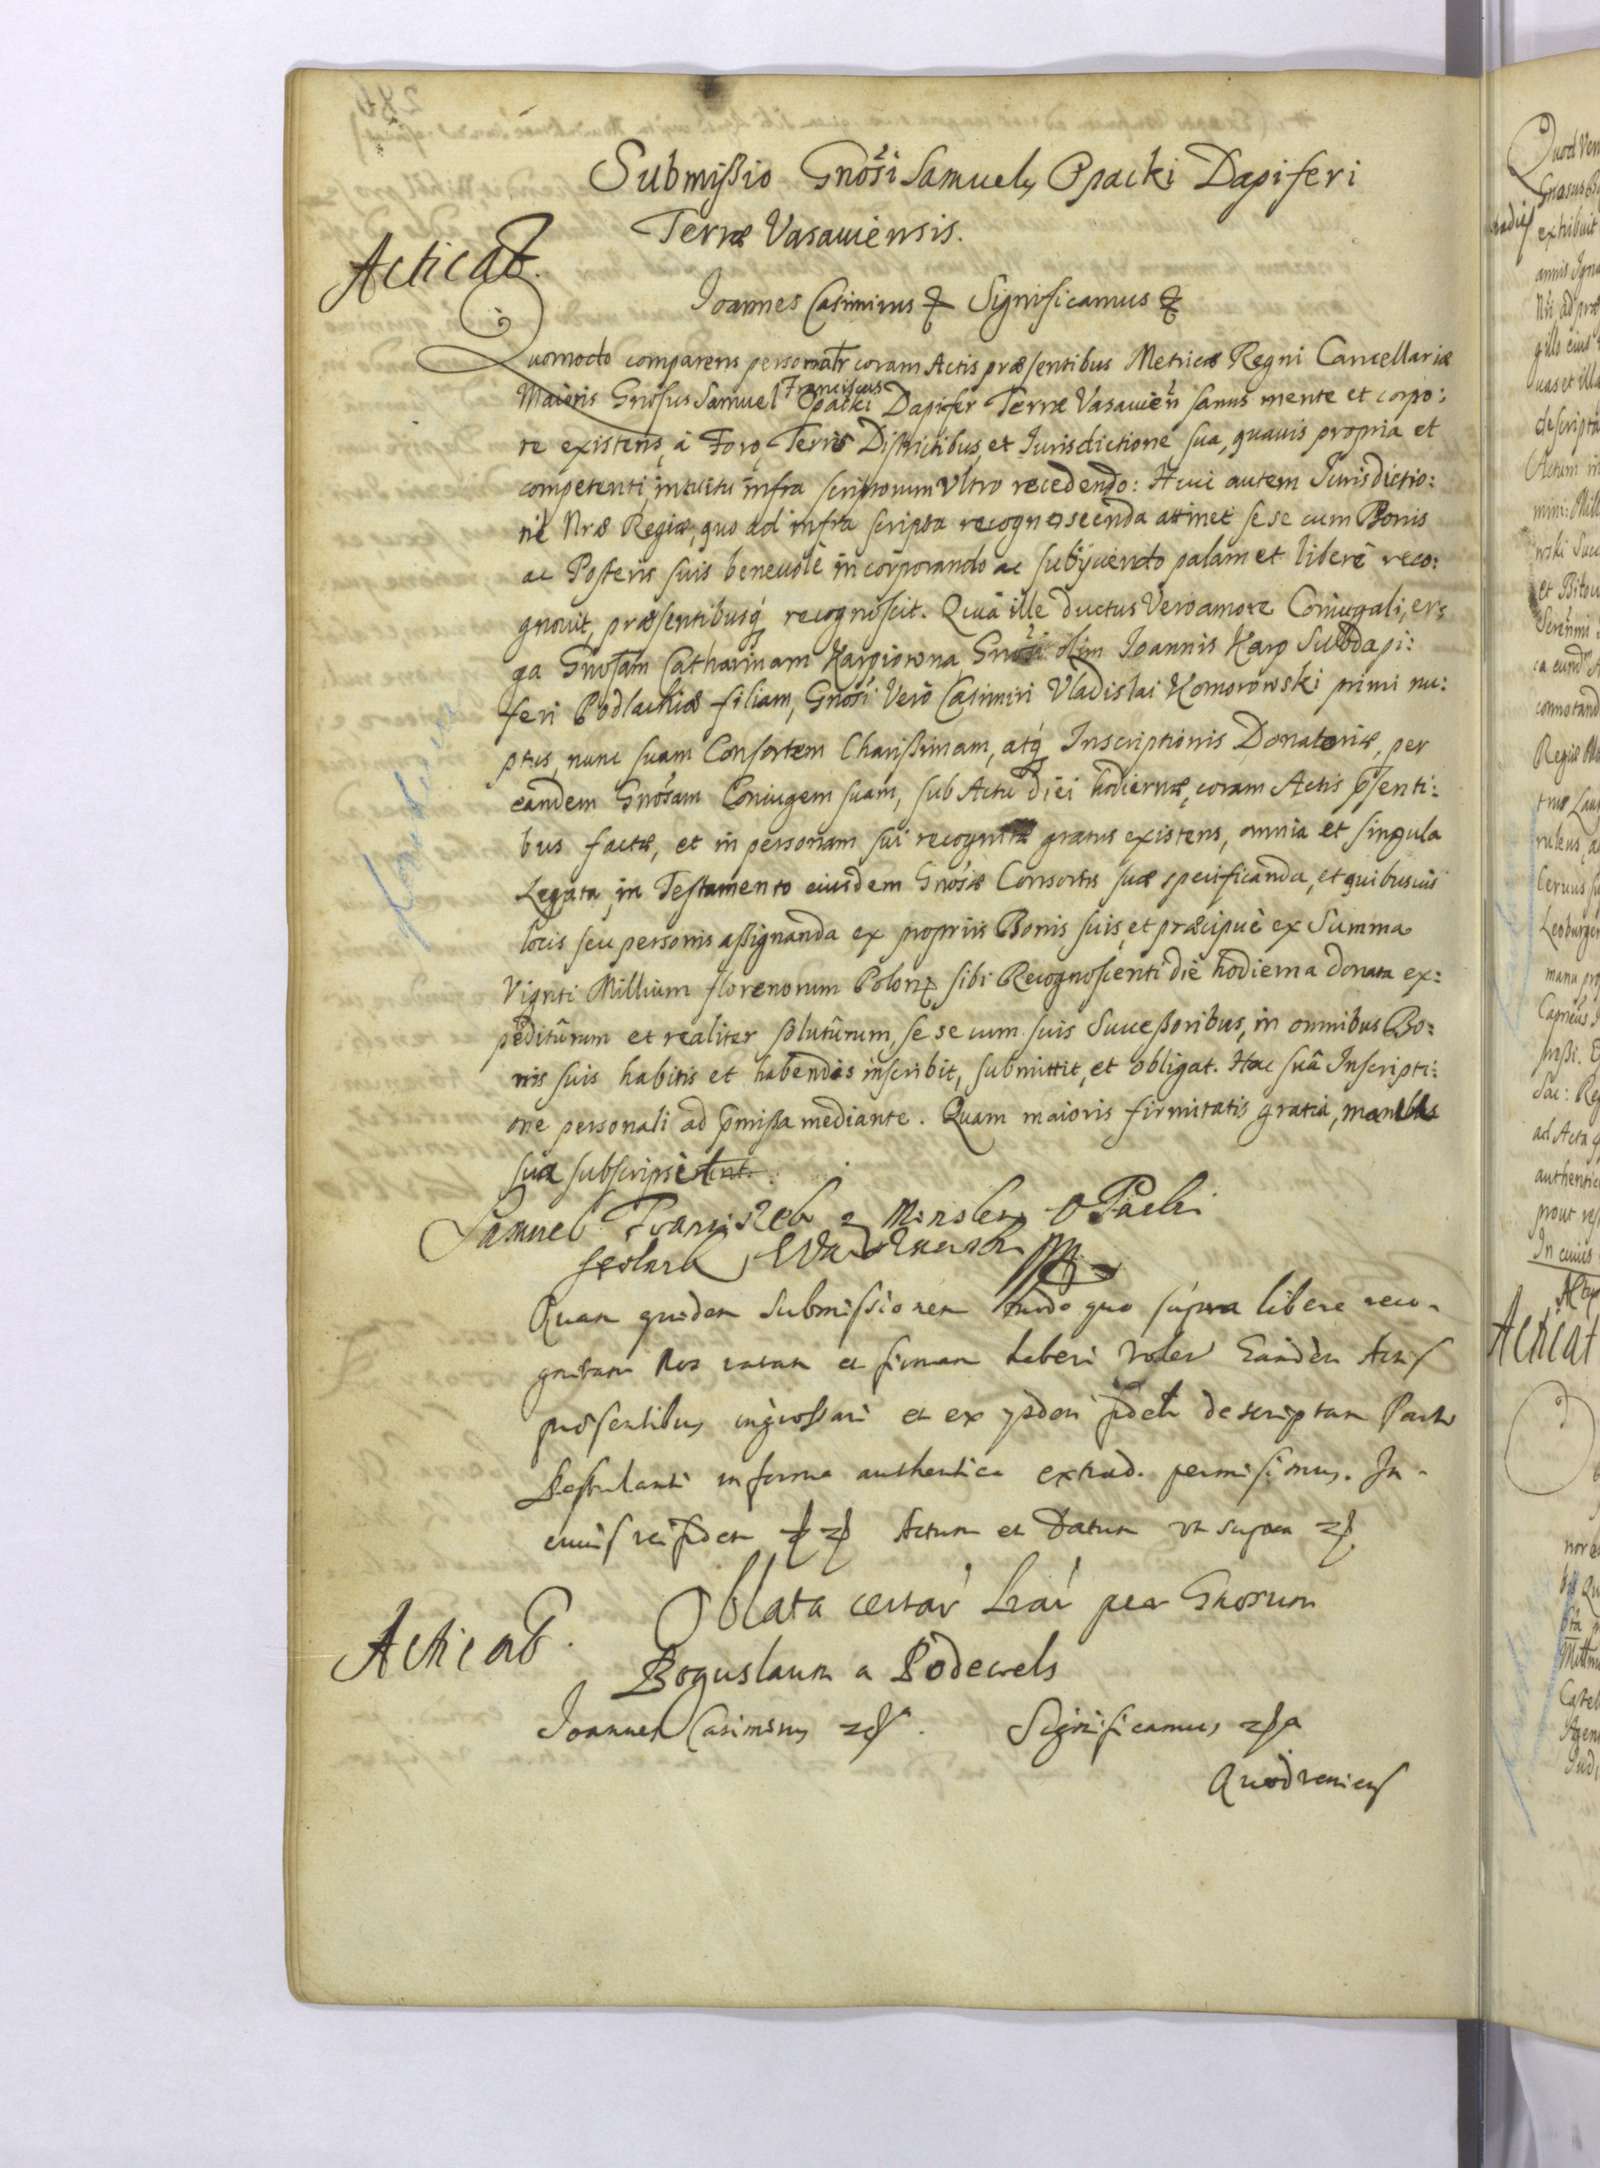 Submißio Gnosi Samuely Opacki Dapiferi
Terræ Varsauiensis.
Acticat.
Joannes Casimirus & Significamus &
Quomodo comparens personatr coram Actis præsentibus Metricæ Regni Cancellariæ
Maioris Gnosus Samuel Franciscus Opacki Dapifer Terræ Varsauien sanus mente et corpo:
re existens, à Foro, Terris Districtibus, et Iurisdictione, sua, quauis propria et
competenti, intuitu infra scriptorum Vltro recedendo: Huic autem Jurisdictio:
ni Nræ Regiæ, quo ad infra scripta recognoscenda attinet se se cum Bonis
ac Posteris suis beneuole incorporando ac subijciendo palam et libere reco:
gnouit, præsentibusq recognoscit. Quia ille ductus Vero amore Coniugali, er:
ga Gnosam Catharinam Karpiowna Gnosi olim Joannis Karp Subdapi:
feri Podlachiæ filiam, Gnosi Vero Casimiri Vladislai Komorowski primi nu:
ptus, nunc suam Consortem Charissimam, atq Inscriptionis Donatoriæ, per
eandem Gnosam Coniugem suam, sub Actu diei hodiernæ, coram Actis psenti:
bus factæ, et in personam sui recognitæ gratus existens, omnia et singula
Legata in Testamento eiusdem Gnosæ Consortis suæ specificanda, et quibusuis
locis seu personis assignanda ex propriis Bonis suis, et præcipuè ex Summa
Viginti Millium florenorum Polon sibi Recognoscenti die hodierna donata ex:
peditûrum et realiter solutûrum, se se cum suis Successoribus, in omnibus Bo:
nis suis habitis et habendis inscribit, submittit, et obligat. Hac suâ Inscripti:
one personali ad pmissa mediante. Quam maioris firmitatis gratia, manibus
sua subscripsit.
Samuel Franciszek z Minsker OPacki
Quam quidem Submissionem modo quo supra libere reco-
gnitam Nos ratam et firmam haberi volen Eandem Actis
præsentibus ingrossari et ex ysdem descriptam Parti
Postulanti in forma authentica extrad. permisimus. In
cuius rei fidem & & Actum et Datum vt supra &
Acticat.
Oblata certar Lrar per Gnosum
Boguslaum a Podewels
Joannes Casimirus & Significamus &
Quod veniens